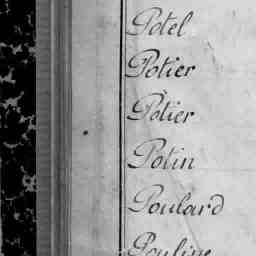 Potel
Potier
Potier
Potin
Poulard
Pouline